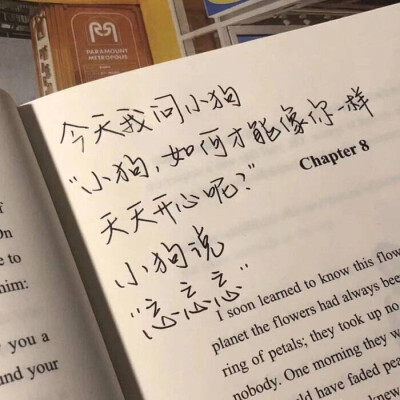 PARAMOUNT
METROPOLIS
今天我问小狗
"小狗,如何才能像你一样
天天开心呢?"
小狗说
"忘忘忘"
of
On
e to
him:
y you a
und your
Chapter 8
I soon learned to know this flow
planet the flowers had always bee
ring of petals; they took up no
nobody. One morning they w
ld have faded peac
knew